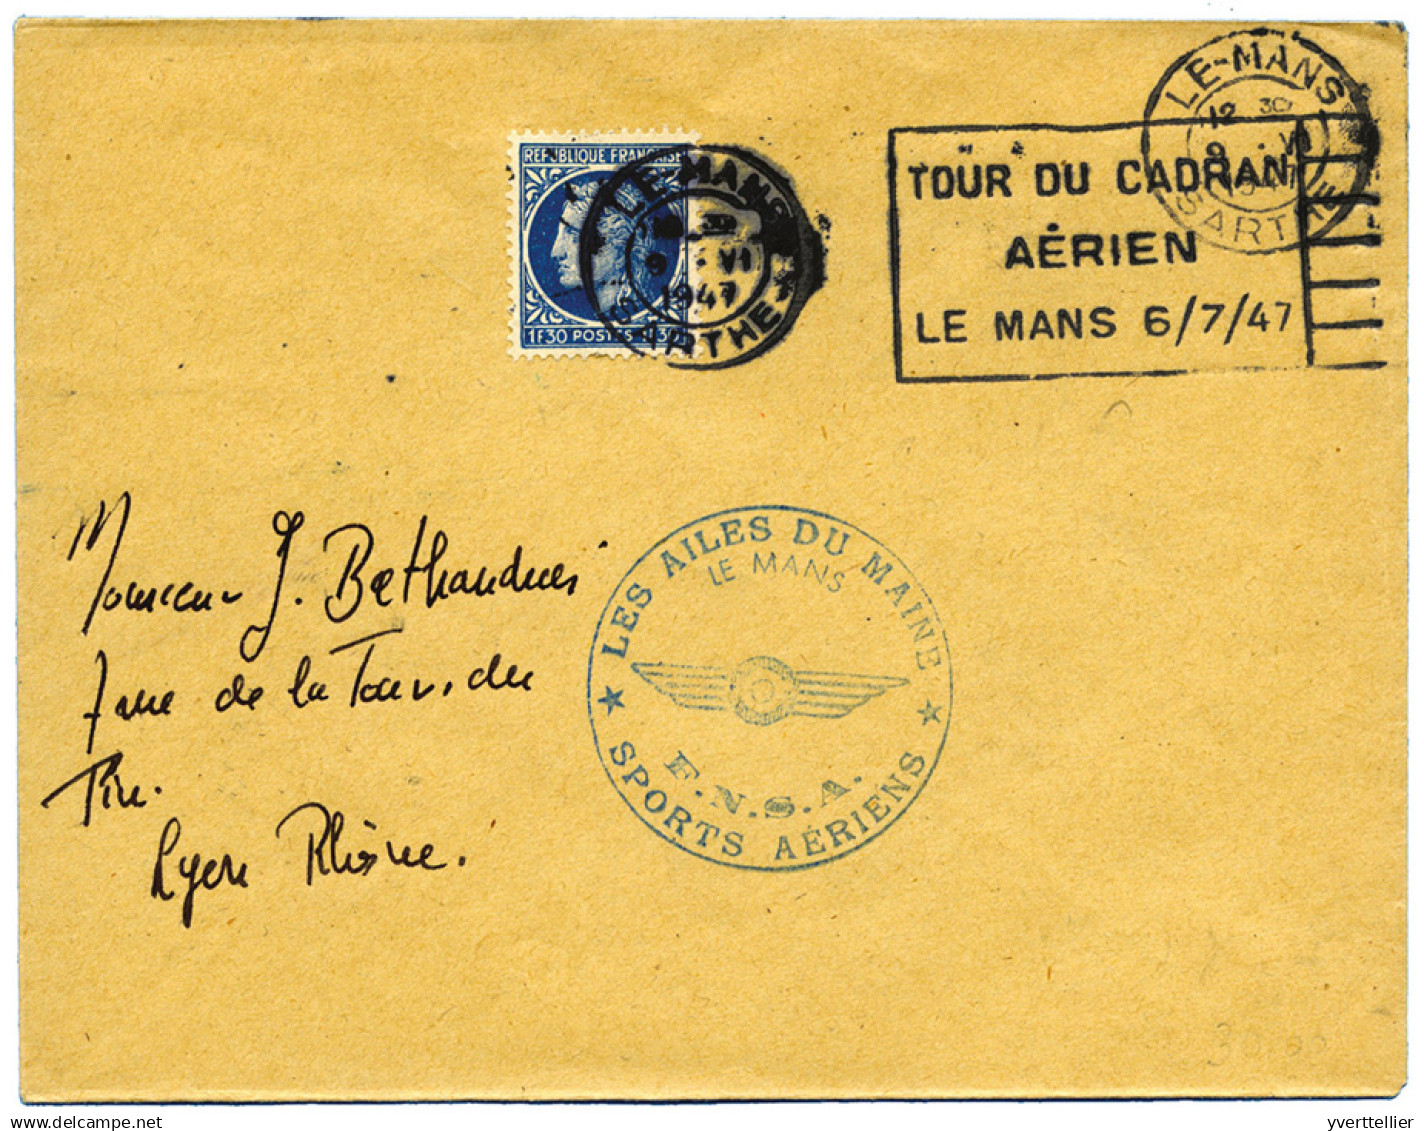 REPUBLIQUE FRANÇAISE
1F30 POSTES 1F30
LE-MANS
9 VI
1947
SARTHE
LE-MANS
12 30
9 VI
1947
SARTHE
TOUR DU CADRAN
AÉRIEN
LE MANS 6/7/47
Monsieur J. Bethandries
7 rue de la Tour du
Pin.
Lyon Rhône.
LES AILES DU MAINE
LE MANS
F.N.S.A.
SPORTS AÉRIENS
yverttellier